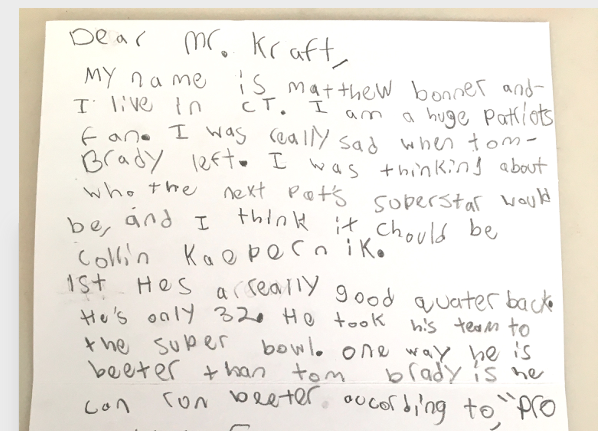 Dear Mr. Kraft,
My name is matthew bonner and-
I live in CT. I am a huge Patriots
fan. I was really sad when tom-
Brady left. I was thinking about
who the next Pat's superstar would
be, and I think it chould be
Collin Kaepernik.
1st Hes a really good quaterback.
He's only 32. He took his team to
the super bowl. one way he is
beeter than tom brady is he
can run beeter. according to, "pro